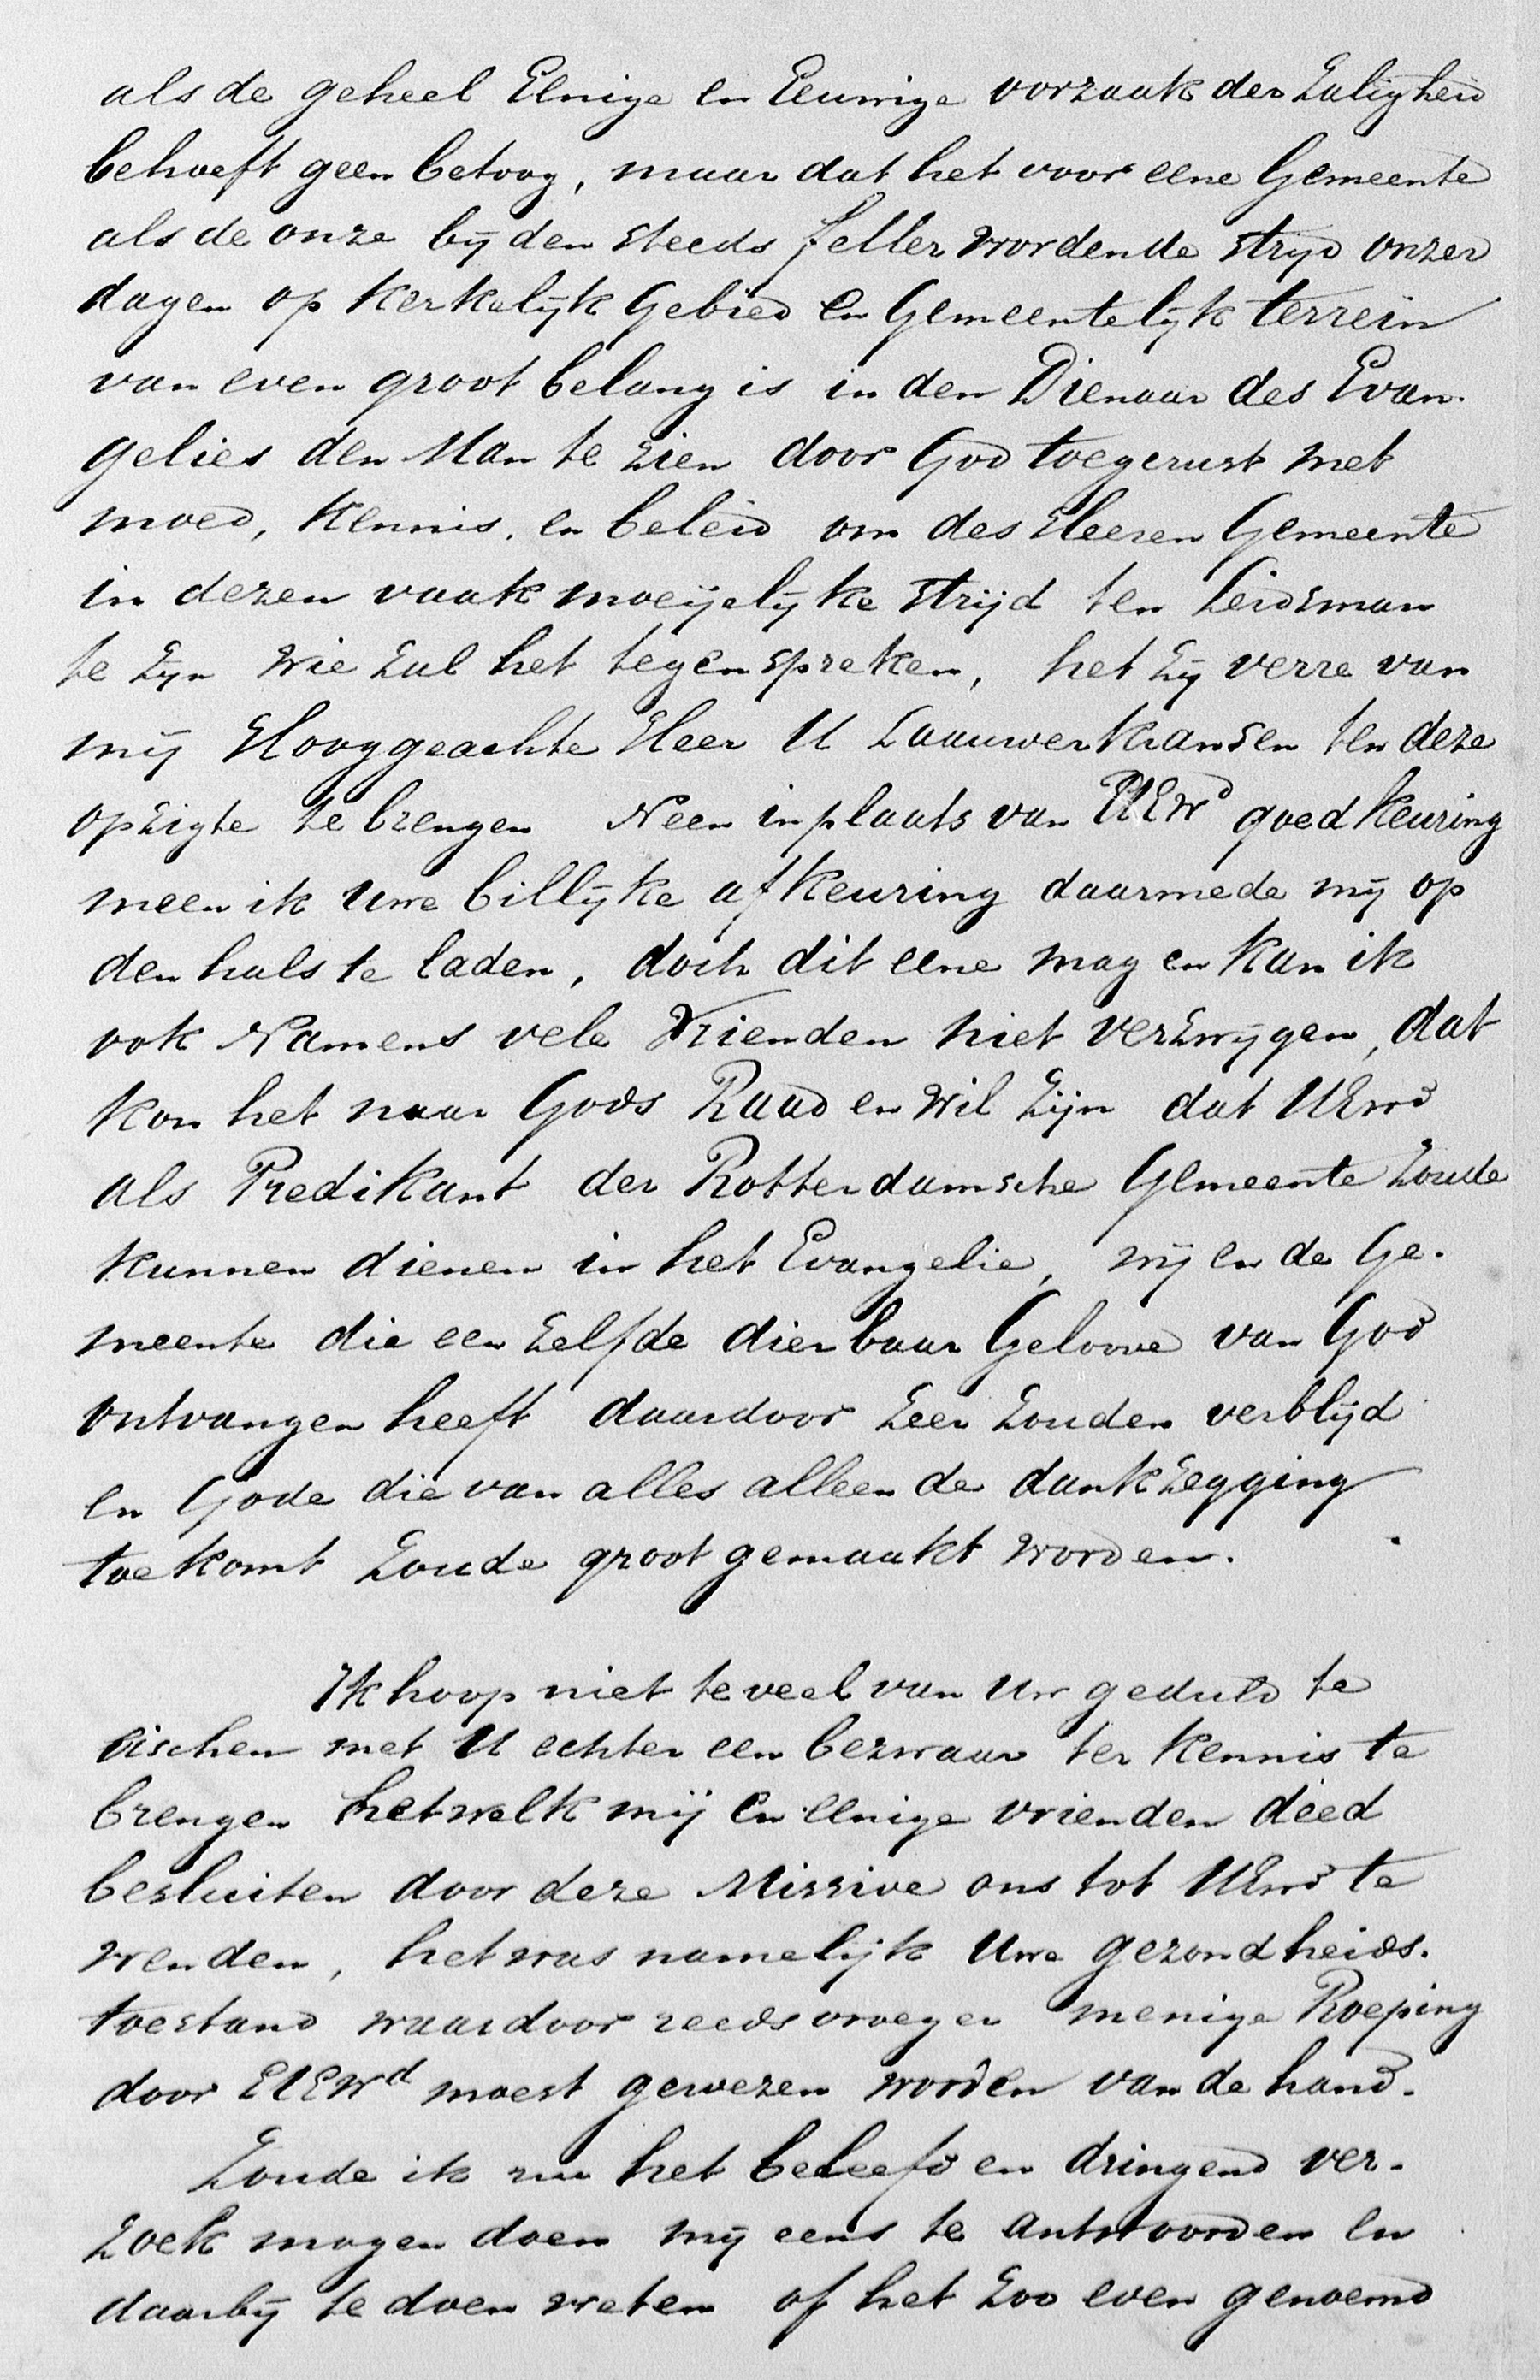 als de geheel Eenige en Eeuwige oorzaak der Zaligheid
behoeft geen betoog, maar dat het voor eene Gemeente
als de onze bij den steeds feller wordende strijd onzer
dagen op Kerkelijk Gebied en Gemeentelijk terrein
van even groot belang is in den Dienaar des Evan-
gelies den Man te zien door God toegerust met
moed, Kennis, en beleid om des Heeren Gemeente
in dezen vaak moeijelijke strijd ten Leidsman
te Zijn wie Zal het tegenspreken, het Zij verre van
mij Hooggeachte Heer U Laauwerkransen ten deze
opzigte te brengen Neen in plaats van UEWd goedkeuring
meen ik Uwe billijke afkeuring daarmede mij op
den hals te laden, doch dit eene mag en Kan ik
ook Namens vele Vrienden niet verzwijgen, dat
Kon het naar Gods Raad en Wil Zijn dat UEwd
als Predikant der Rotterdamsche Gemeente Zoude
Kunnen dienen in het Evangelie, wij en de Ge-
meente die een Zelfde dierbaar Geloove van God
ontvangen heeft daardoor Zeer Zouden verblijd
en Gode die van alles alleen de dankzegging
toekomt Zoude groot gemaakt worden.
Ik hoop niet te veel van Uw geduld te
eischen met U echter een bezwaar ter Kennis te
brengen hetwelk mij en eenige vrienden deed
besluiten door deze Missive ons tot UEwd te
wenden, het was namelijk Uwe gezondheids-
toestand waardoor reeds vroeger menige Roeping
door UEWd moest gewezen worden van de hand.
Zoude ik nu het beleefd en dringend ver-
Zoek mogen doen mij eens te antwoorden en
daarbij te doen weten of het Zoo even genoemd